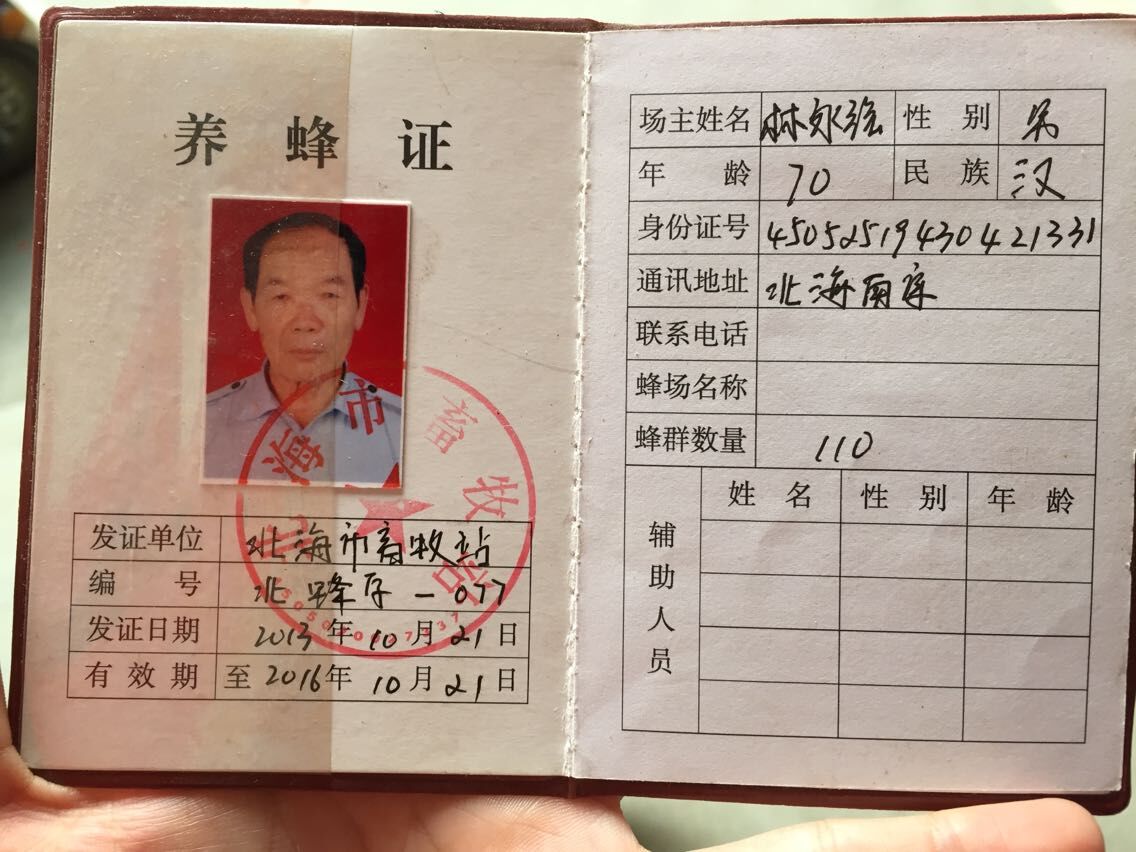 养蜂证
发证单位 北海市畜牧站
编号 北蜂字-077
发证日期 2013年10月21日
有效期 至2016年10月21日
北海市畜牧站
场主姓名 性别 男
年龄 70 民族 汉
身份证号 45052519430421331
通讯地址 北海
联系电话
蜂场名称
蜂群数量 110
辅助人员
姓名 性别 年龄